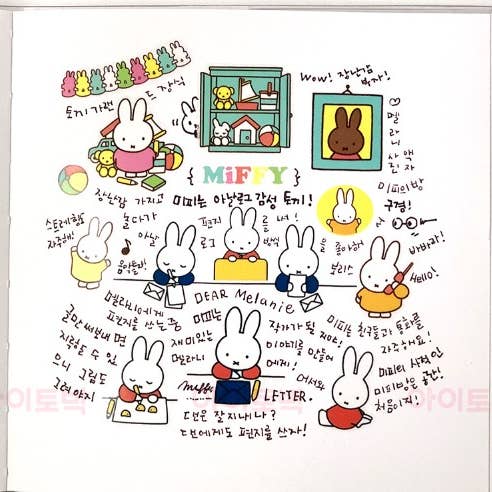 토끼 가랜드 장식
Wow! 장난감
박자!
멜라니 사진
액자
{ MiFFY }
장난감 가지고
놀다가
미피는 아날로그 감성 토끼!
미피의 방
구경!
스트레칭도
자주해!
아날
로그
편지
를 너!
방식
을 좋아하
보리스
바바라!
Hello!
음악들으
멜라니에게
편지를 쓰는중
DEAR Melanie
글만 써보내면
지루할 수 있
으니 그림도
그려야지
미피는
재미있는
멜라니
작가가 될 거야!
이야기를 만들어
에게!
미피는 친구들과 통화를
자주하요!
어서와
미피의 사적인
미피방은 공간!
처음이지!
miffy
LETTER.
다은 잘지내니?
다은에게도 편지를 쓰자!
아이토닉